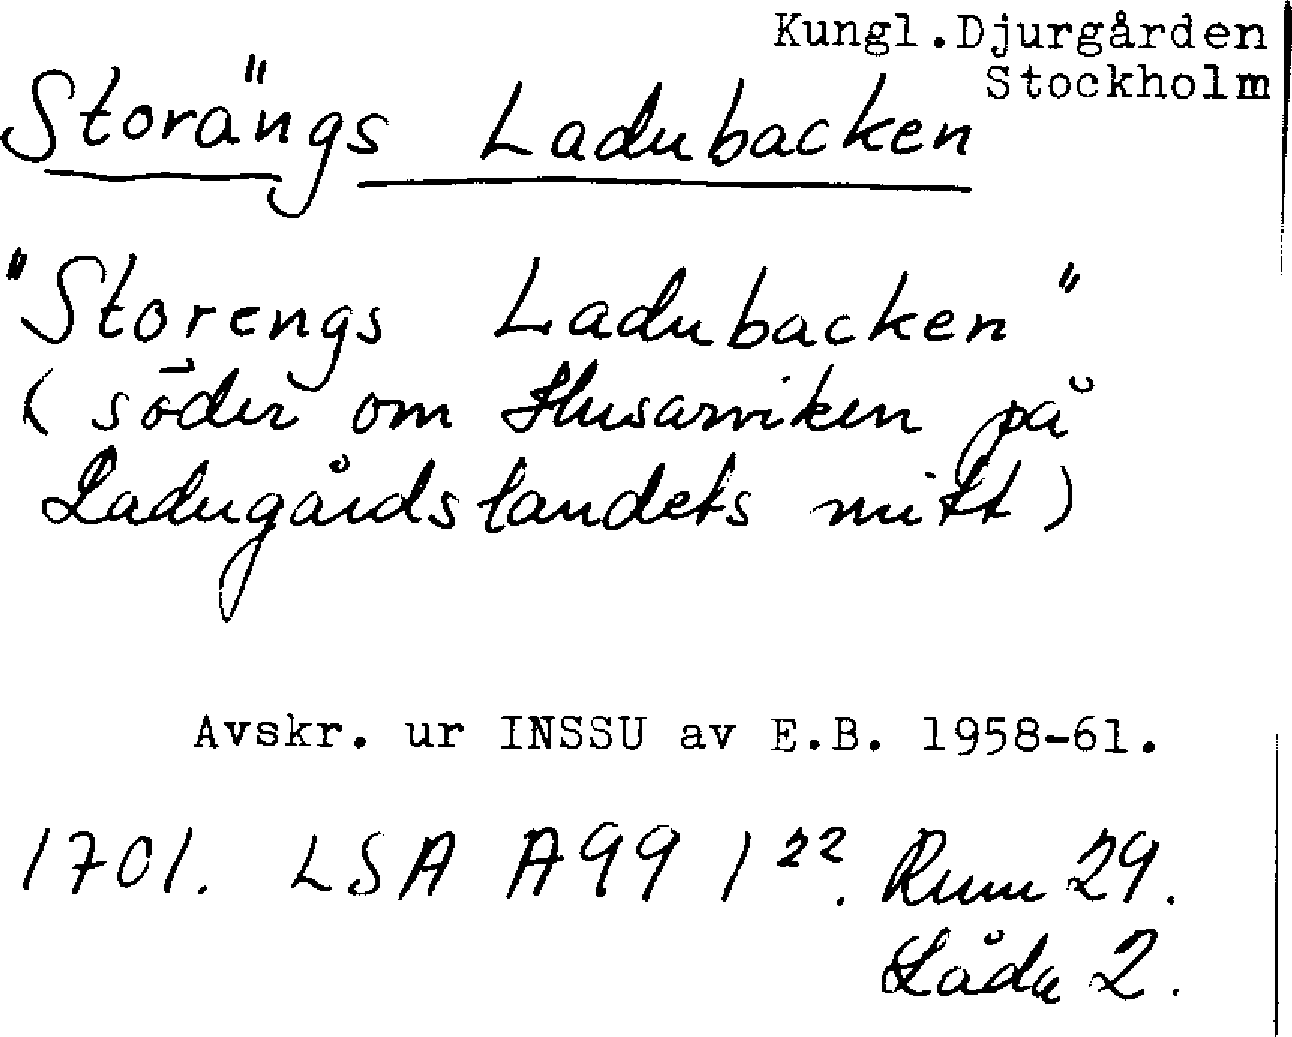 Kungl.Djurgården
Stockholm
Storängs Ladubacken
"Storengs Ladubacken"
(söder om Husarviken på
Ladugårdslandets mitt)
Avskr. ur INSSU av E.B. 1958-61.
1701. LSA A99 1²². Rum 29.
Låda 2.